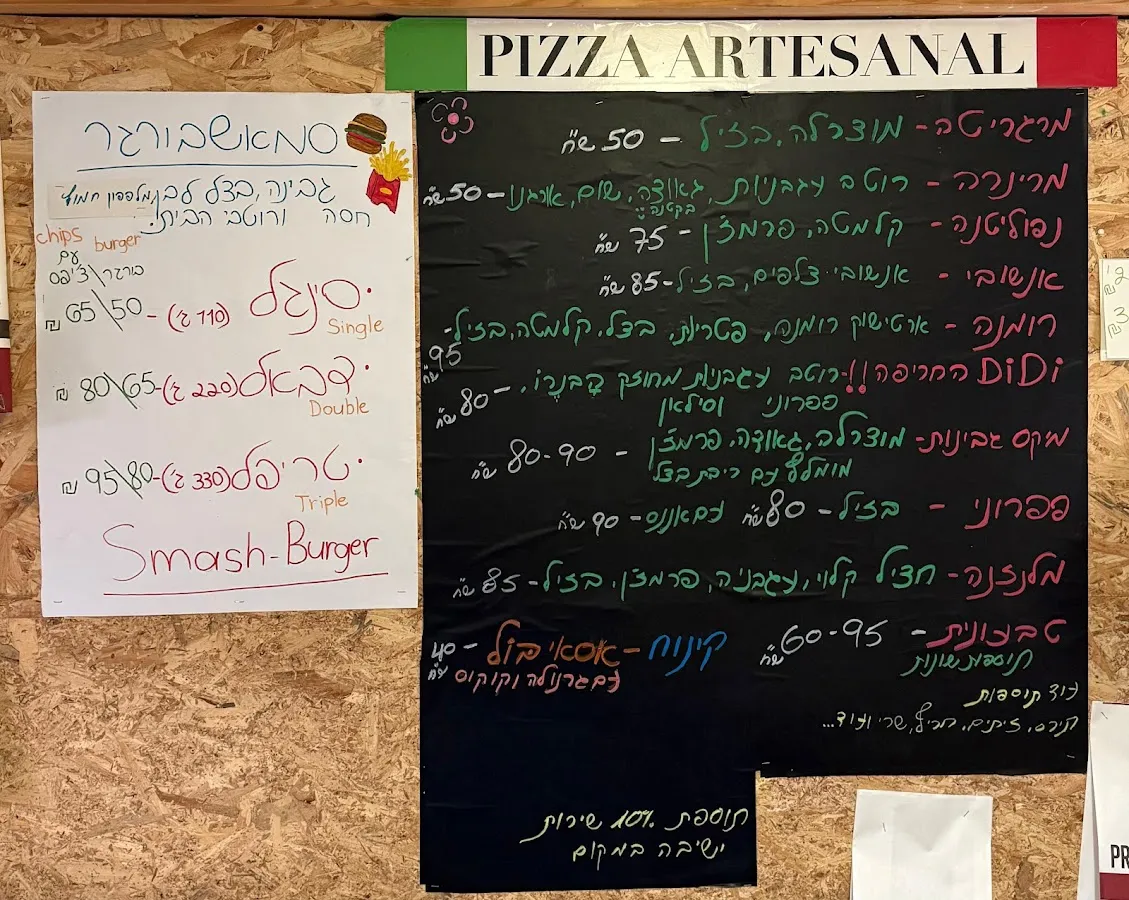 PIZZA ARTESANAL
סמאשבורגר
גבינה, בצל לבן, מלפפון חמוץ
חסה ורוטב הבית.
chips burger
עם
בורגר\צ'יפס
סינגל (110 ג') - 50\65 ₪
Single
דבאל (220 ג') - 65\80 ₪
Double
טריפל (330 ג') - 80\95 ₪
Triple
Smash-Burger
מרגריטה - מוצרלה, בזיל - 50 ש"ח
מרינרה - רוטב עגבניות, גאודה, שום, אורגנו - 50 ש"ח
בקטנה
נפוליטנה - קלמטה, פרמז'ן - 75 ש"ח
אנשובי - אנשובי צלפים, בזיל - 85 ש"ח
רומנה - ארטישוק רומנה, פטריות, בצל, קלמטה, בזיל - 95 ש"ח
DiDi החריפה!! - רוטב עגבניות מחוזק הָבַּנֶרוֹ, - 80 ש"ח
פפרוני וסילאן
מיקס גבינות - מוצרלה, גאודה, פרמז'ן - 80-90 ש"ח
מומלץ עם ריבת בצל
פפרוני - בזיל - 80 ש"ח עם אננס - 90 ש"ח
מלנזנה - חציל קלוי, עגבניה, פרמז'ן, בזיל - 85 ש"ח
טבעונית - 60-95 ש"ח
תוספות שונות
קינוח - אסאי בול - 40 ש"ח
עם גרנולה וקוקוס
עוד תוספות
תירס, זיתים, חריף, שרי ועוד...
תוספת 10% שירות
ישיבה במקום
PR